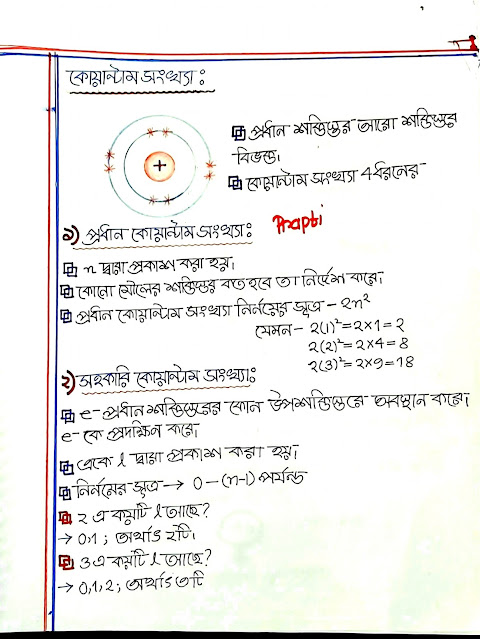 কোয়ান্টাম সংখ্যা :
প্রধান শক্তিস্তর আরো শক্তিস্তরে
বিভক্ত।
কোয়ান্টাম সংখ্যা 4 ধরনের
+
১) প্রধান কোয়ান্টাম সংখ্যা : Prapti
n দ্বারা প্রকাশ করা হয়।
কোনো মৌলের শক্তিস্তর কত হবে তা নির্দেশ করে।
প্রধান কোয়ান্টাম সংখ্যা নির্নয়ের সূত্র – 2n²
যেমন – 2(1)² = 2×1 = 2
2(2)² = 2×4 = 8
2(3)² = 2×9 = 18
২) সহকারি কোয়ান্টাম সংখ্যা :
e- প্রধান শক্তিস্তরের কোন উপশক্তিস্তরে অবস্থান করে।
e- কে প্রদক্ষিন করে।
একে l দ্বারা প্রকাশ করা হয়।
নির্নয়ের সূত্র → 0 – (n-1) পর্যন্ত
২ এ কয়টি l আছে?
→ 0,1 ; অর্থাৎ ২টি।
3 এ কয়টি l আছে?
→ 0,1,2 ; অর্থাৎ ৩টি